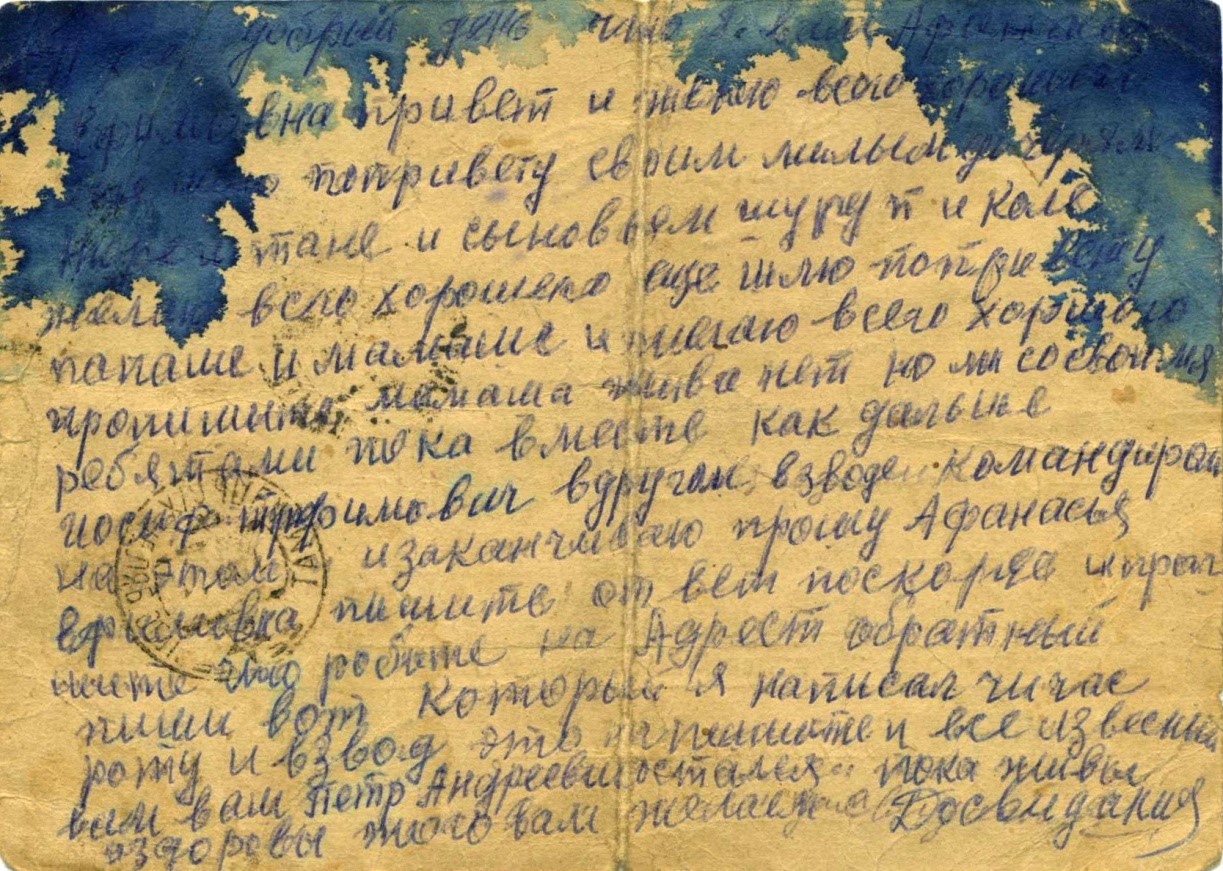 добрый день шлю я вам Афанасья
ефимовна привет и жилаю всего хорошего
попривету своим милым дочерям
и тане и сыновьям шуру п и коле
желаю всего хорошего еще шлю попривету
папаше и мамаше и жилаю всего хорошого
пропишите мамаша жива нет но мы со своимя
ребятами пока вместе как дальше
иосиф трофимович вдругом взводе командиром
на этом изаканчиваю прошу Афанасья
ефимовна пишите ответ поскорее и проп
ишите что робите на Адрест обратный
пиши вот который я написал чичас
роту и взвод это напишите и все извесны
вам ваш петр Андреевич остался пока живы
издоровы того вам желаем Досвидания